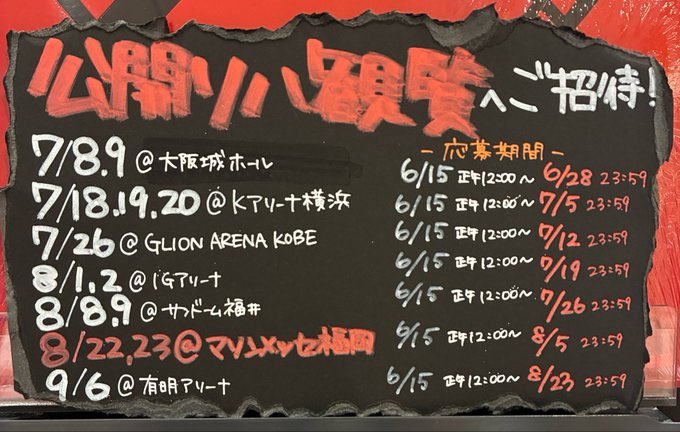 公開リハ観覧へご招待!
-応募期間-
7/8.9 @大阪城ホール 6/15 正午12:00~6/28 23:59
7/18.19.20 @Kアリーナ横浜 6/15 正午12:00~7/5 23:59
7/26 @ GLION ARENA KOBE 6/15 正午12:00~7/12 23:59
8/1.2 @IGアリーナ 6/15 正午12:00~7/19 23:59
8/8.9 @サンドーム福井 6/15 正午12:00~7/26 23:59
8/22,23@マリンメッセ福岡 6/15 正午12:00~8/5 23:59
9/6 @有明アリーナ 6/15 正午12:00~8/23 23:59